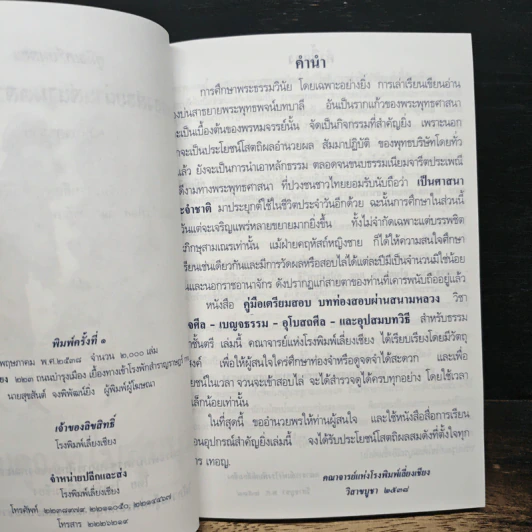 พิมพ์ครั้งที่ ๑
พฤษภาคม พ.ศ.๒๕๓๘ จำนวน ๒,๐๐๐ เล่ม
๒๒๓ ถนนบำรุงเมือง เยื้องทางเข้าโรงพักสำราญราษฎร์
นายสุขสันต์ จงพิพัฒน์ยิ่ง ผู้พิมพ์ผู้โฆษณา
เจ้าของลิขสิทธิ์
โรงพิมพ์เลี่ยงเซียง
จำหน่ายปลีกและส่ง
โรงพิมพ์เลี่ยงเซียง
โทรสาร ๒๒๒๖๒๑๙
คำนำ
การศึกษาพระธรรมวินัย โดยเฉพาะอย่างยิ่ง การเล่าเรียนเขียนอ่าน
บ่นสาธยายพระพุทธพจน์บทบาลี อันเป็นรากแก้วของพระพุทธศาสนา
ะเป็นเบื้องต้นของพรหมจรรย์นั้น จัดเป็นกิจกรรมที่สำคัญยิ่ง เพราะนอก
จะเป็นประโยชน์โสตถิผลอำนวยผล สัมมาปฏิบัติ ของพุทธบริษัทโดยทั่ว
แล้ว ยังจะเป็นการนำเอาหลักธรรม ตลอดจนขนบธรรมเนียมจารีตประเพณี
ดีงามทางพระพุทธศาสนา ที่ปวงชนชาวไทยยอมรับนับถือว่า เป็นศาสนา
ะจำชาติ มาประยุกต์ใช้ในชีวิตประจำวันอีกด้วย ฉะนั้นการศึกษาในส่วนนี้
วันแต่จะเจริญแพร่หลายขยายมากยิ่งขึ้น ทั้งไม่จำกัดเฉพาะแต่บรรพชิต
ภิกษุสามเณรเท่านั้น แม้ฝ่ายคฤหัสถ์หญิงชาย ก็ได้ให้ความสนใจศึกษา
เรียนเช่นเดียวกันและมีการวัดผลหรือสอบไล่ได้แต่ละปีมีเป็นจำนวนมิใช่น้อย
และนอกราชอาณาจักร ดังปรากฏแก่สายตาของท่านที่เคารพนับถืออยู่แล้ว
หนังสือ คู่มือเตรียมสอบ บทท่องสอบผ่านสนามหลวง วิชา
จศีล - เบญจธรรม - อุโบสถศีล - และอุปสมบทวิธี สำหรับธรรม
าชั้นตรี เล่มนี้ คณาจารย์แห่งโรงพิมพ์เลี่ยงเซียง ได้เรียบเรียงโดยมีวัตถุ
งค์ เพื่อให้ผู้สนใจใคร่ศึกษาท่องจำหรือดูจดจำได้สะดวก และเพื่อ
ยชน์ในเวลา จวนจะเข้าสอบไล่ จะได้สำรวจดูได้ครบทุกอย่าง โดยใช้เวลา
เล็กน้อยเท่านั้น
ในที่สุดนี้ ขออำนวยพรให้ท่านผู้สนใจ และใช้หนังสือสื่อการเรียน
อนอุปกรณ์สำคัญยิ่งเล่มนี้ จงได้รับประโยชน์โสตถิผลสมดังที่ตั้งใจทุก
การ เทอญ.
คณาจารย์แห่งโรงพิมพ์เลี่ยงเซียง
วิสาขบูชา ๒๕๓๘